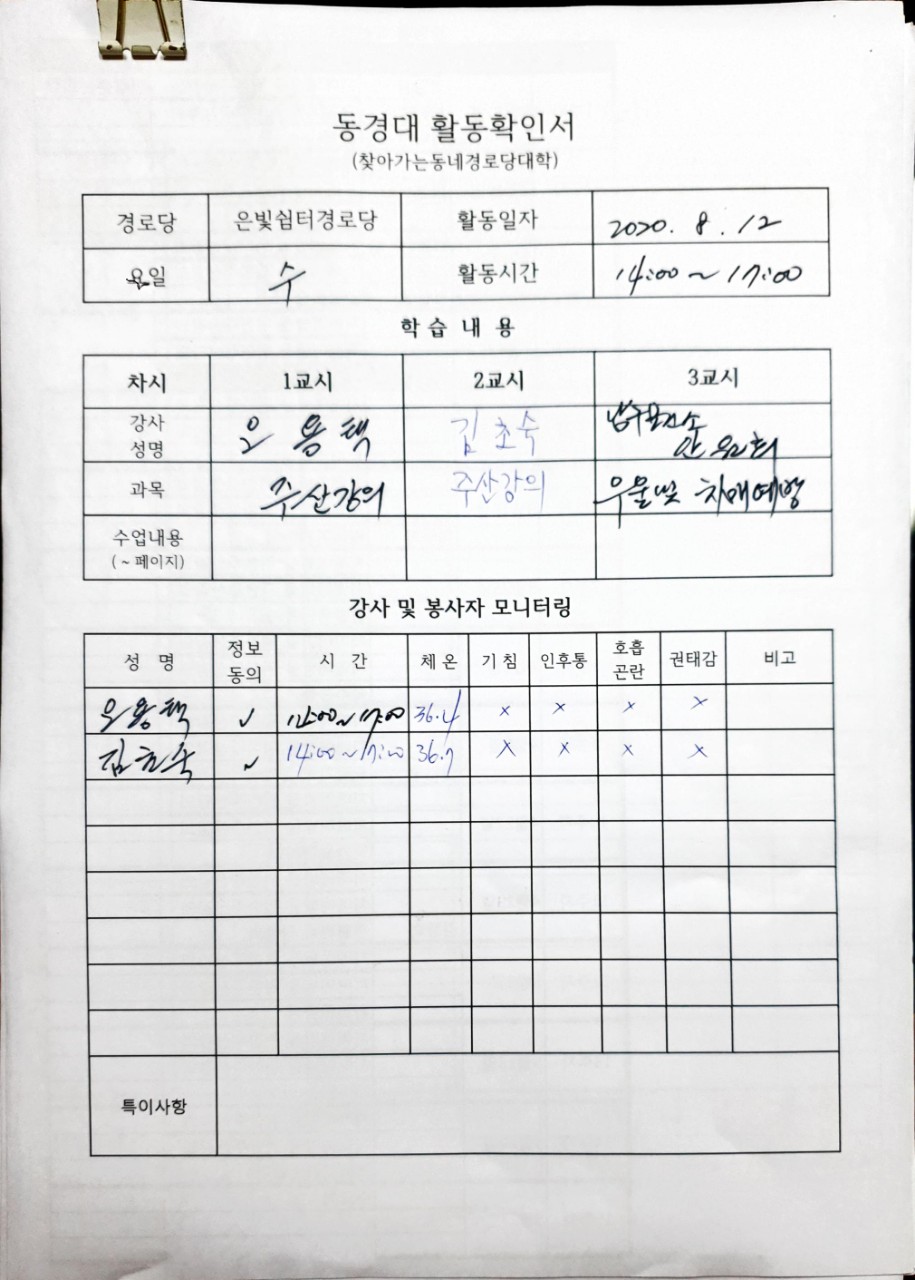 동경대 활동확인서
(찾아가는동네경로당대학)
경로당 은빛쉼터경로당 활동일자 2020. 8. 12
요일 수 활동시간 14:00 ~ 17:00
학 습 내 용
차시 1교시 2교시 3교시
강사 성명 우 용 택 김 초숙 남구보건소
과목 주산강의 주산강의 우울및 치매예방
수업내용
( ~ 페이지)
강사 및 봉사자 모니터링
성 명 정보 동의 시 간 체 온 기 침 인후통 호흡 곤란 권태감 비고
우 용 택 ✓ 14:00 ~ 17:00 36.4 × × × ×
김 초숙 ✓ 14:00 ~ 17:00 36.7 × × × ×
특이사항